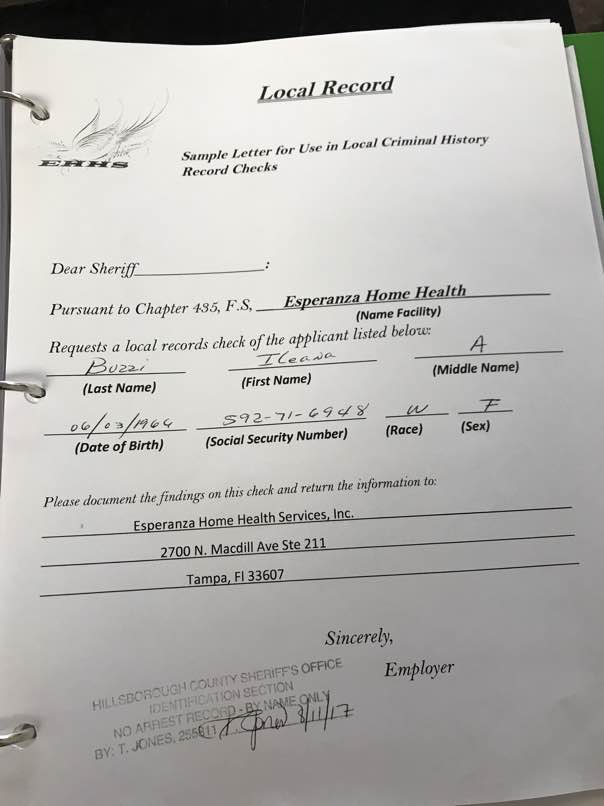 Local Record
EHHS
Sample Letter for Use in Local Criminal History
Record Checks
Dear Sheriff :
Pursuant to Chapter 435, F.S, Esperanza Home Health
(Name Facility)
Requests a local records check of the applicant listed below:
Buzzi Ileana A
(Last Name) (First Name) (Middle Name)
592-71-6948 W F
(Date of Birth) (Social Security Number) (Race) (Sex)
Please document the findings on this check and return the information to:
Esperanza Home Health Services, Inc.
2700 N. Macdill Ave Ste 211
Tampa, Fl 33607
Sincerely,
Employer
HILLSBOROUGH COUNTY SHERIFF'S OFFICE
IDENTIFICATION SECTION
NO ARREST RECORD - BY NAME ONLY
BY: T. JONES, T Jones 8/11/17